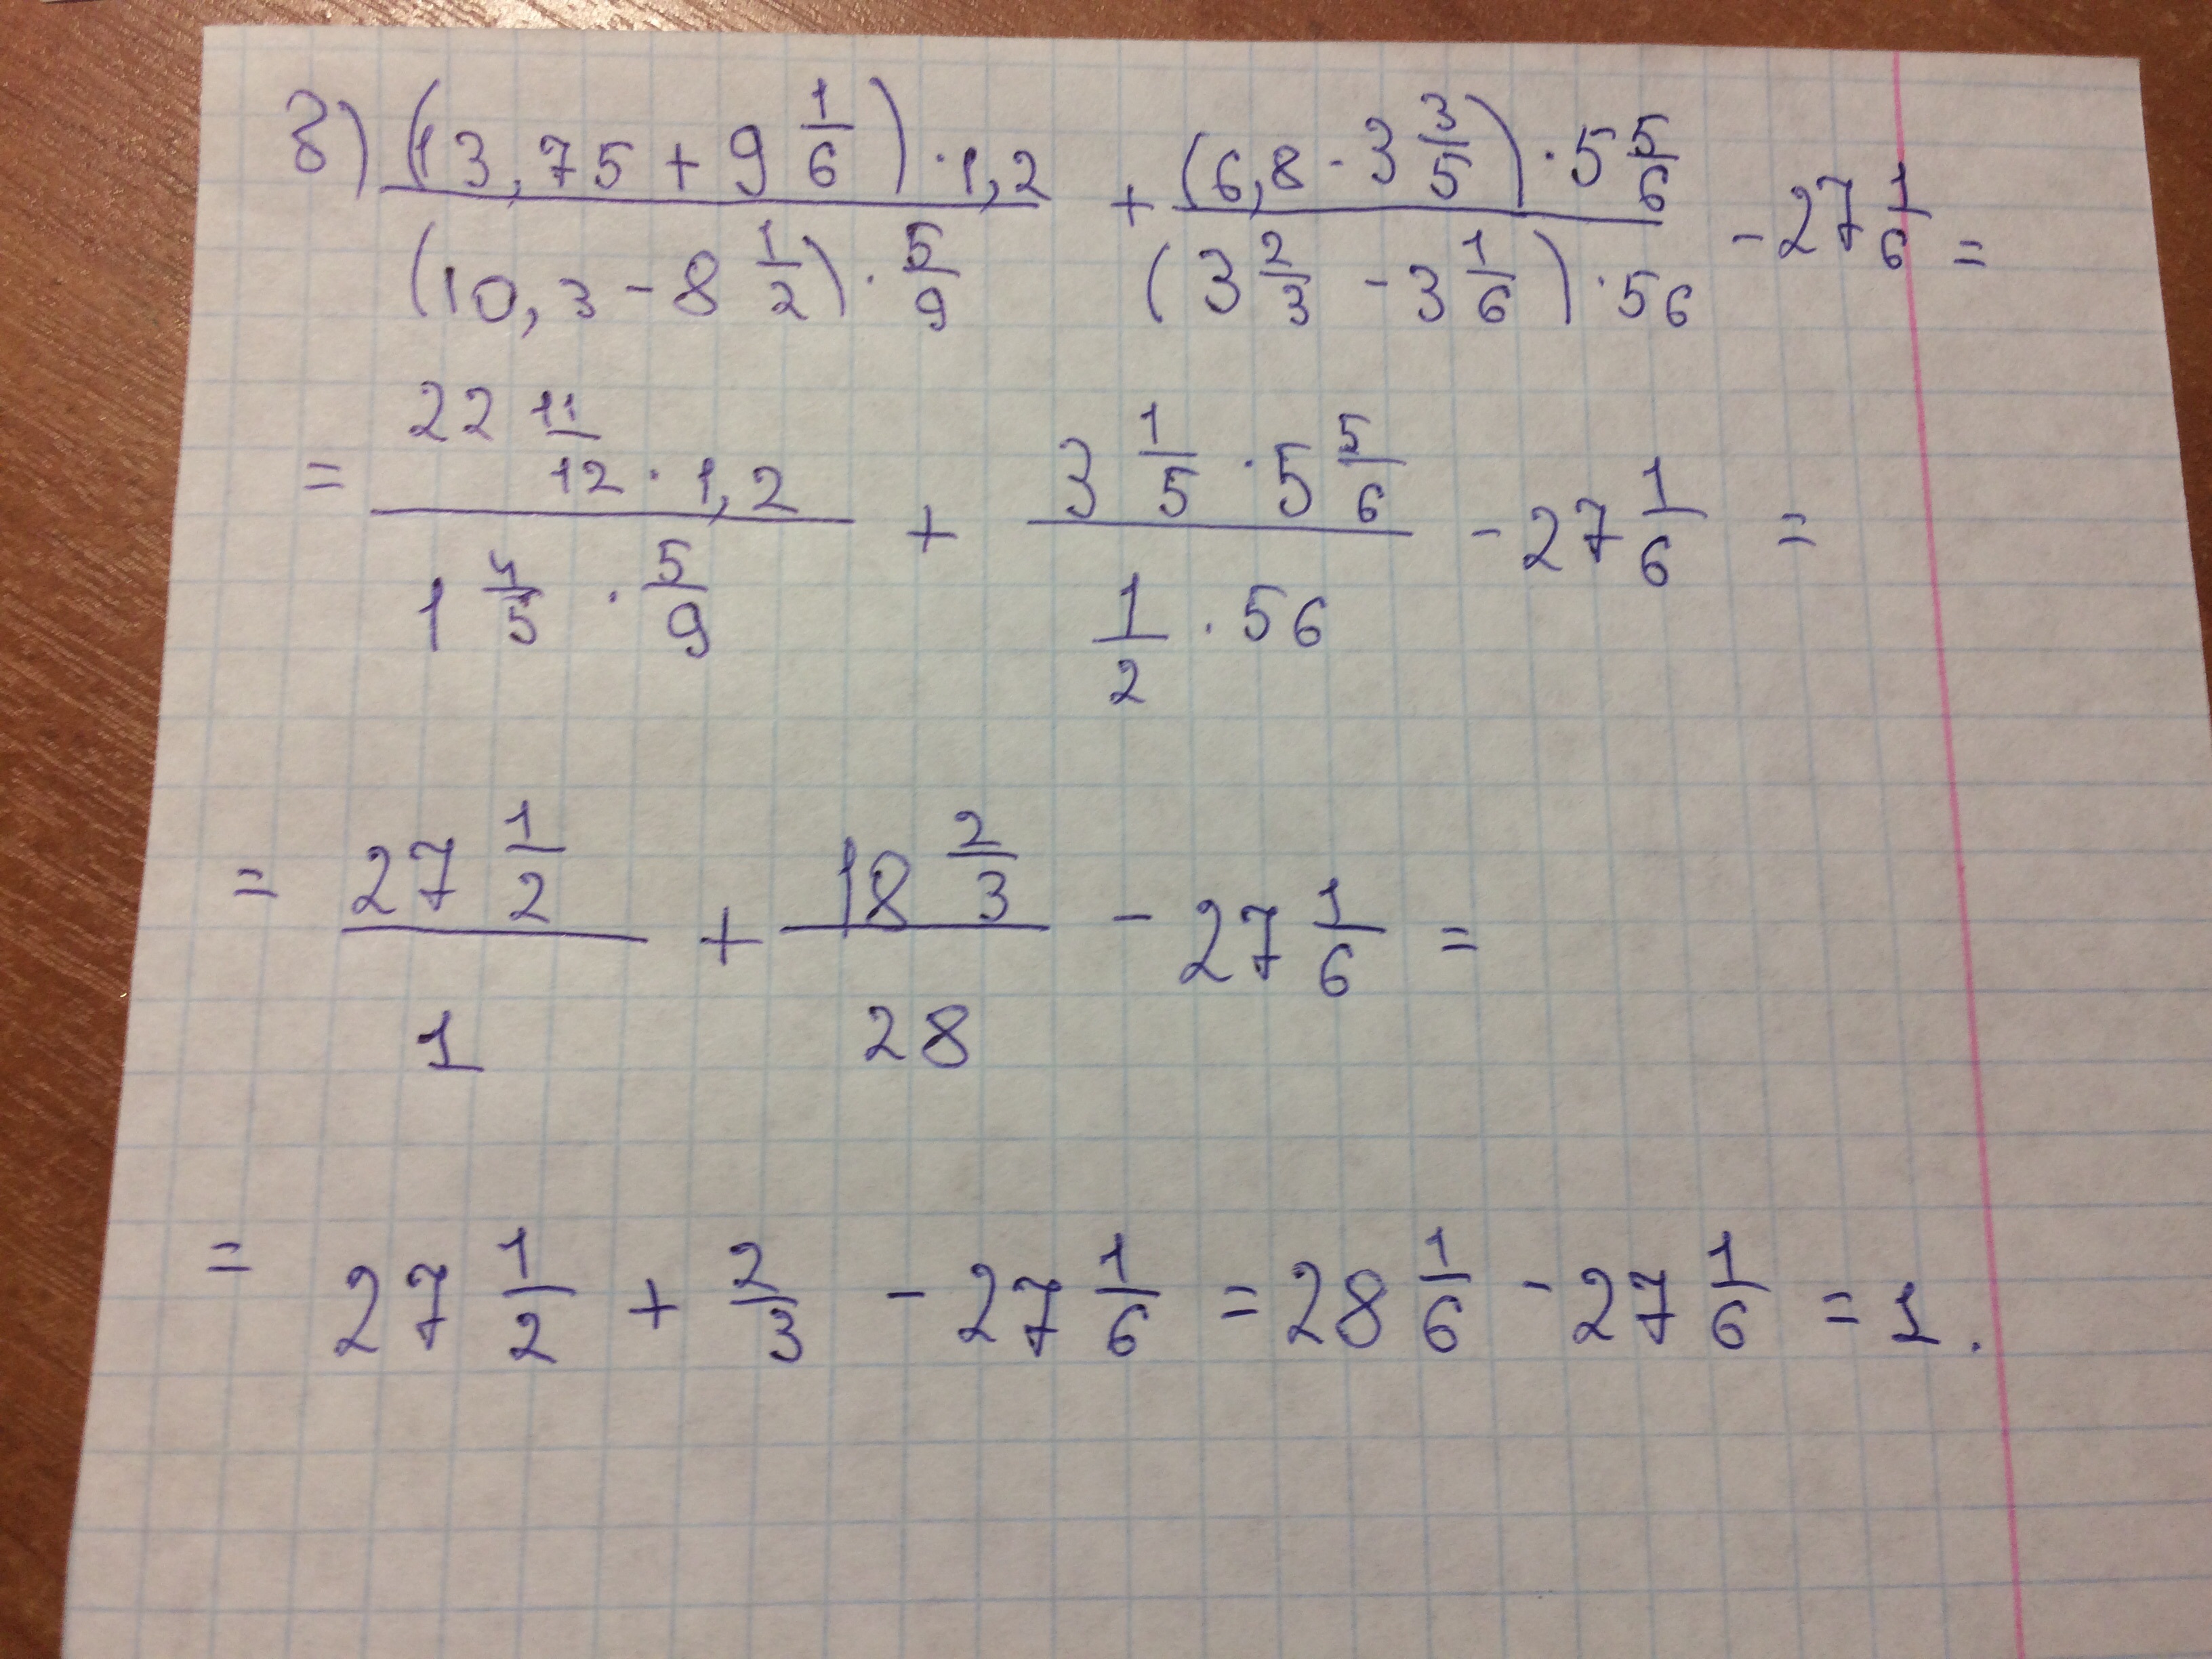 8) ((13,75 + 9 1/6) · 1,2)/((10,3 - 8 1/2) · 5/9) + ((6,8 - 3 3/5) · 5 5/6)/((3 2/3 - 3 1/6) · 56) - 27 1/6 =
= (22 11/12 · 1,2)/(1 4/5 · 5/9) + (3 1/5 · 5 5/6)/(1/2 · 56) - 27 1/6 =
= (27 1/2)/1 + (18 2/3)/28 - 27 1/6 =
= 27 1/2 + 2/3 - 27 1/6 = 28 1/6 - 27 1/6 = 1.